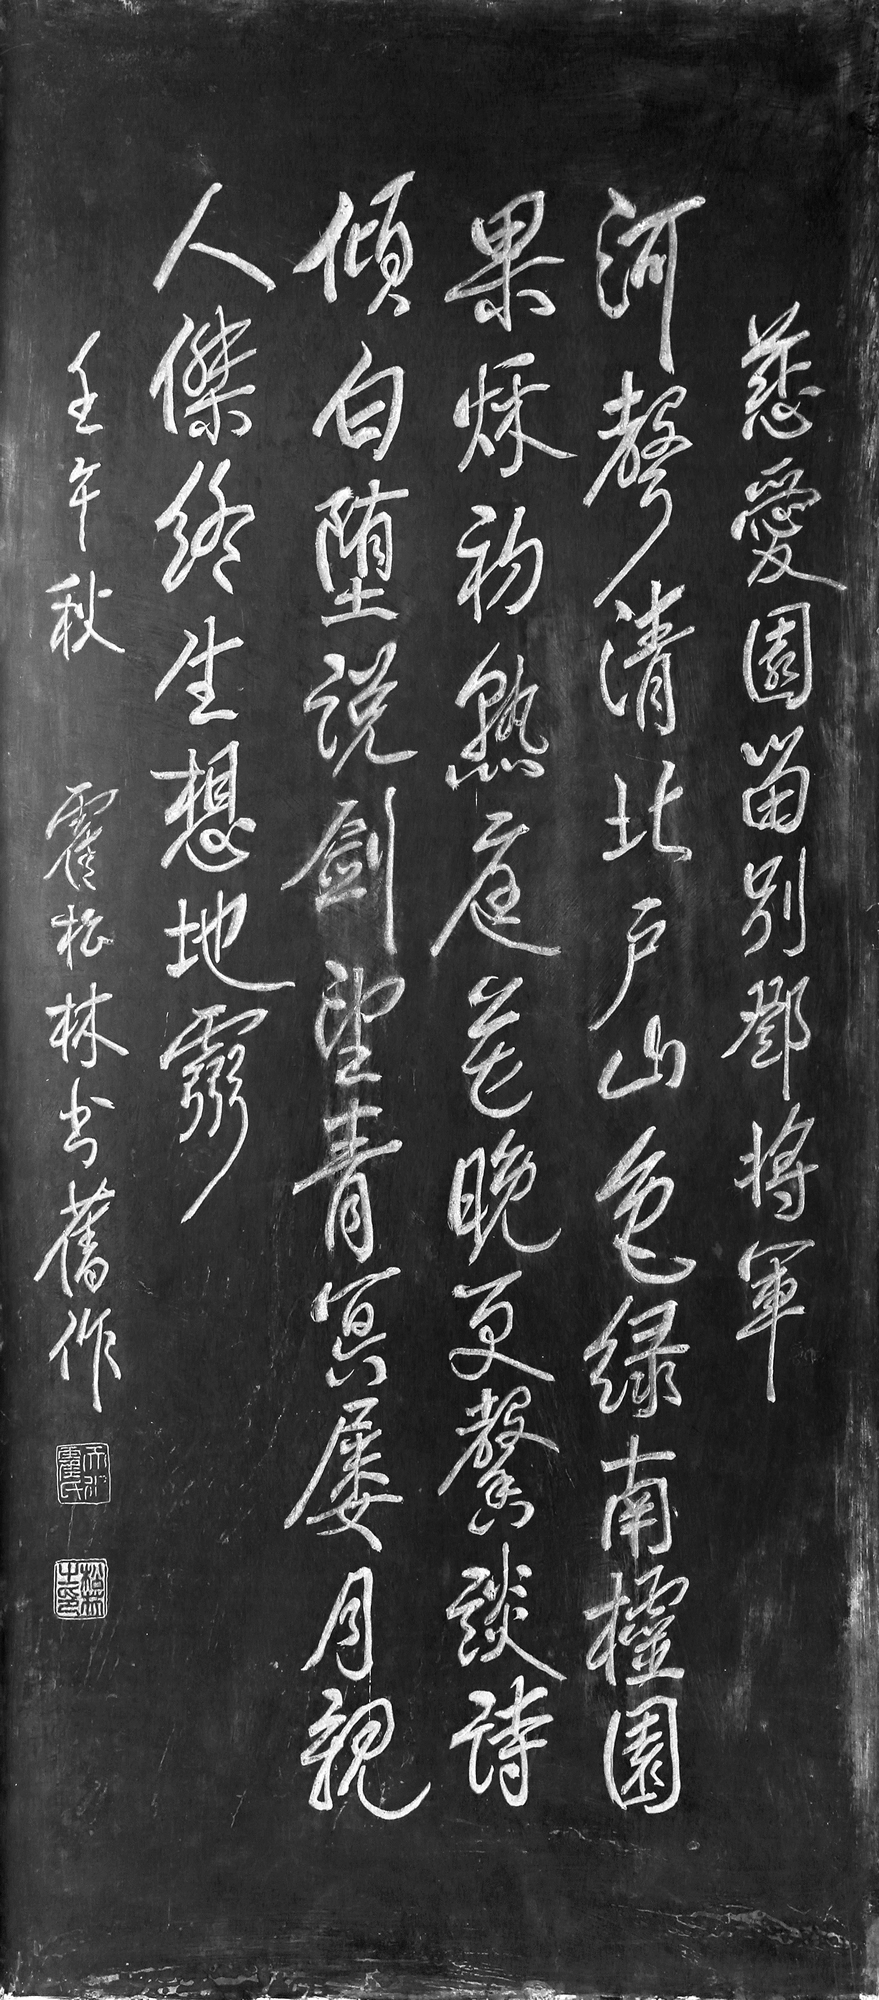 慈愛園留別鄧將軍
河聲清北戶山色綠南櫺園
果秌初熟庭花晚更馨談詩
傾白墮說劍望青冥屢月親
人傑終生想地靈
壬午秋 霍松林書舊作
天水霍氏
松林之印